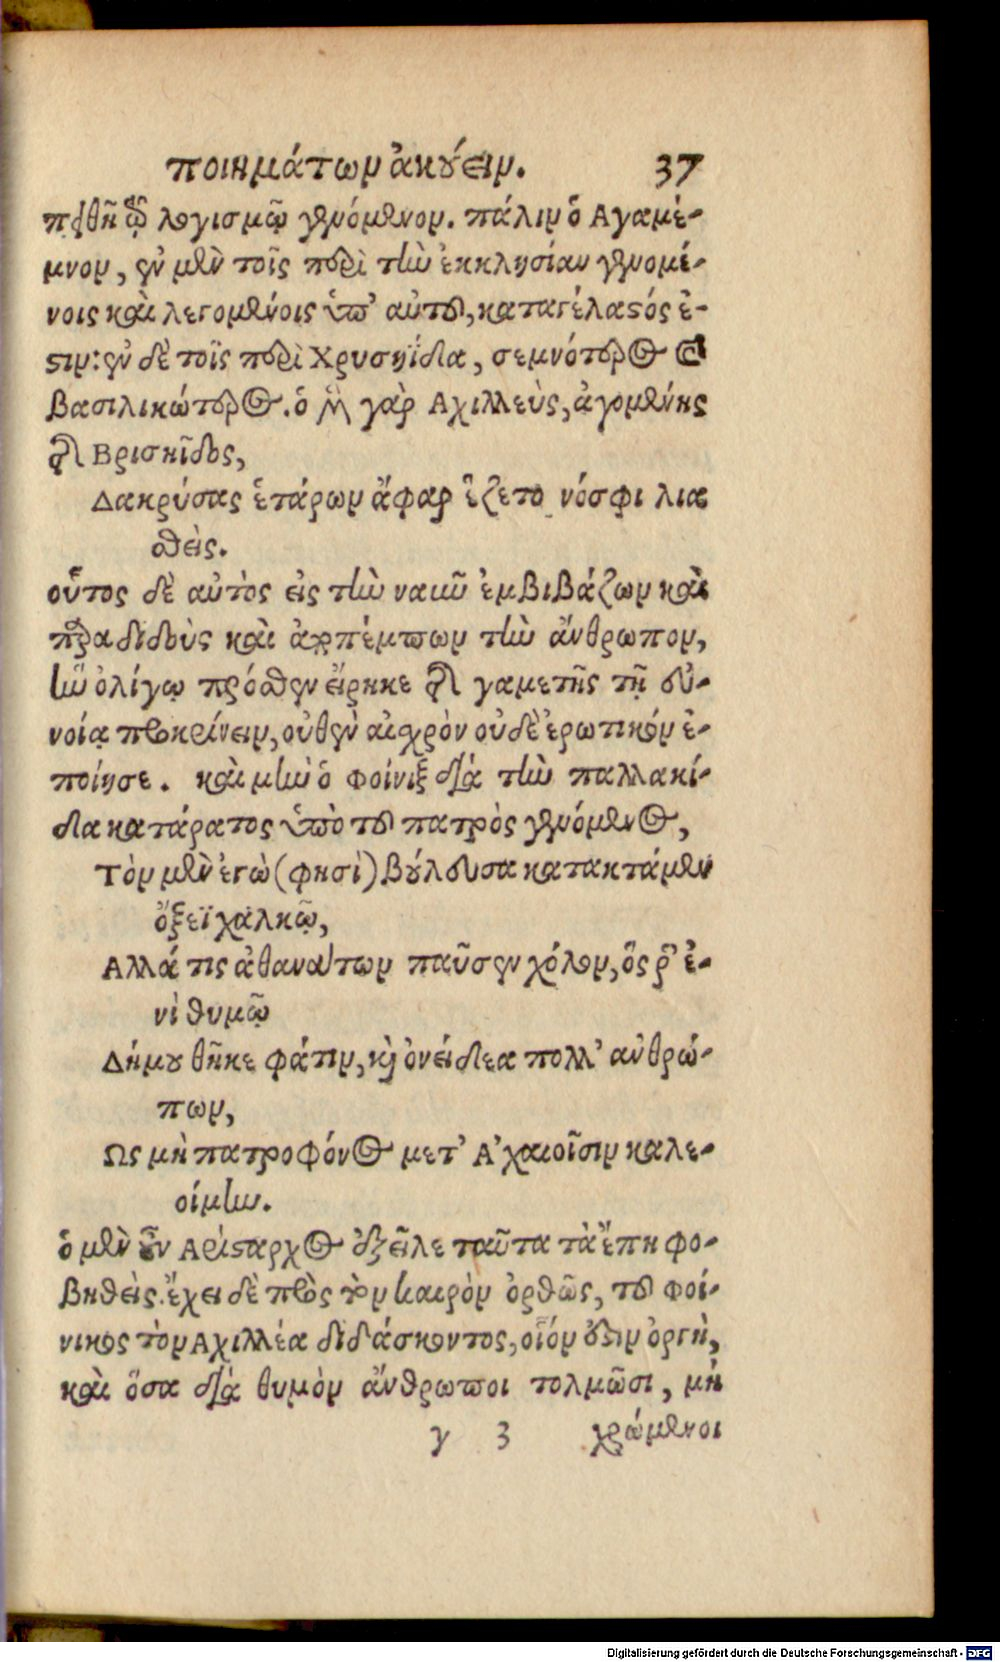 ποιημάτων ἀκούειν. 37
πειθῆ τῷ λογισμῷ γενόμενον. πάλιν ὁ Αγαμέ-
μνον, ἐν μὲν τοῖς περὶ τὴν ἐκκλησίαν γενομέ-
νοις καὶ λεγομένοις ὑπ' αὐτοῦ, καταγέλαστός ἐ-
στιν: ἐν δὲ τοῖς περὶ Χρυσηΐδα, σεμνότερος καὶ
βασιλικώτερος. ὁ μὲν γὰρ Αχιλλεὺς, ἀγομένης
τῆς Βρισηῖδος,
Δακρύσας ἑτάρων ἄφαρ ἕζετο νόσφι λια
σθείς.
οὗτος δὲ αὐτὸς εἰς τὴν ναῦν ἐμβιβάζων καὶ
παραδιδοὺς καὶ ἀποπέμπων τὴν ἄνθρωπον,
ἣν ὀλίγῳ πρόσθεν εἴρηκε τῆς γαμετῆς τῇ εὐ-
νοίᾳ προκρίνειν, οὐθὲν αἰσχρὸν οὐδὲ ἐρωτικόν ἐ-
ποίησε. καὶ μὴν ὁ Φοίνιξ διὰ τὴν παλλακί-
δα κατάρατος ὑπὸ τοῦ πατρὸς γενόμενος,
Τὸν μὲν ἐγὼ (φησὶ) βούλευσα κατακτάμεν
ὀξεῖ χαλκῷ,
Αλλά τις ἀθανάτων παῦσεν χόλον, ὅς ῥ' ἐ-
νὶ θυμῷ
Δήμου θῆκε φάτιν, καὶ ὀνείδεα πολλ' ἀνθρώ-
πων,
Ως μὴ πατροφόνος μετ' Ἀχαιοῖσιν καλε-
οίμην.
ὁ μὲν οὖν Αρίσταρχος ἐξεῖλε ταῦτα τὰ ἔπη φο-
βηθείς. ἔχει δὲ πρὸς τὸν καιρὸν ὀρθῶς, τοῦ Φοί-
νικος τὸν Αχιλλέα διδάσκοντος, οἷόν ἐστιν ὀργὴ,
καὶ ὅσα διὰ θυμὸν ἄνθρωποι τολμῶσι, μὴ
γ 3 χρώμενοι
Digitalisierung gefördert durch die Deutsche Forschungsgemeinschaft - DFG